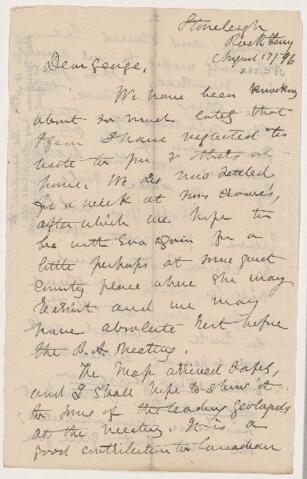 Stoneleigh
Rock Ferry
August 17/96
Dear George,
We have been knocking
about so much lately that
I fear I have neglected to
write to you & others at
home. We are now settled
for a week at Mrs
after which we hope to
be with Eva again for a
little perhaps at some quiet
country place where she may
and we may
have absolute rest before
the B.A. Meeting.
The Map arrived safe,
and I shall hope to show it
to some of the leading geologists
at the meeting. It is a
good contribution to Canadian